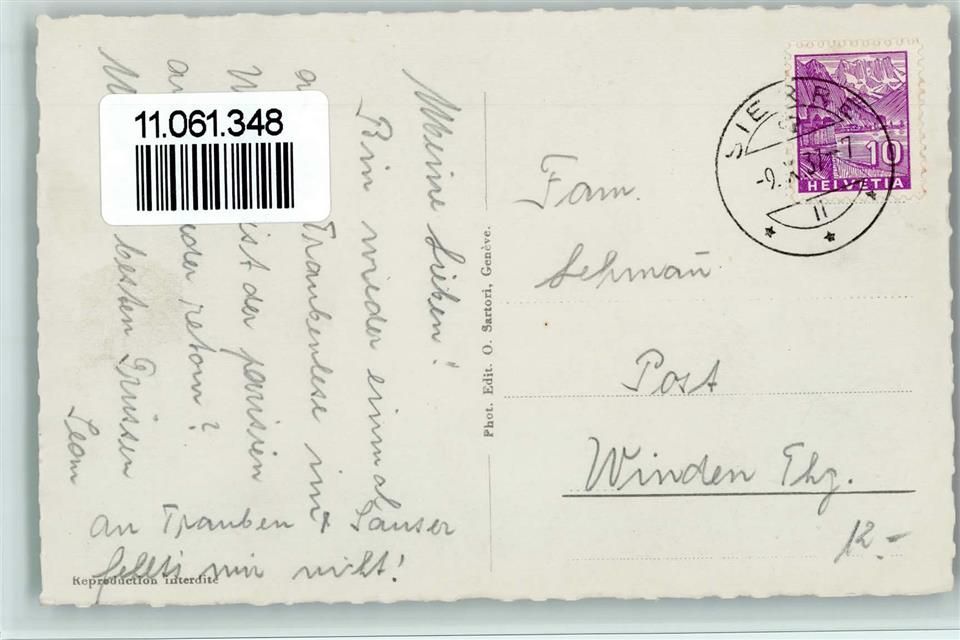 11.061.348
Meine Lieben!
Bin wieder einmal
Traubenlese und
ist der parisien
retour?
besten Grüssen
Leom
an Trauben & Sauser
fehlts mir nicht!
Reproduction interdite
Phot. Edit. O. Sartori, Genève.
SIERRE
-9. X. 37 - 7
10
HELVETIA
Fam.
Lehmañ
Post
Winden Thg.
12.-